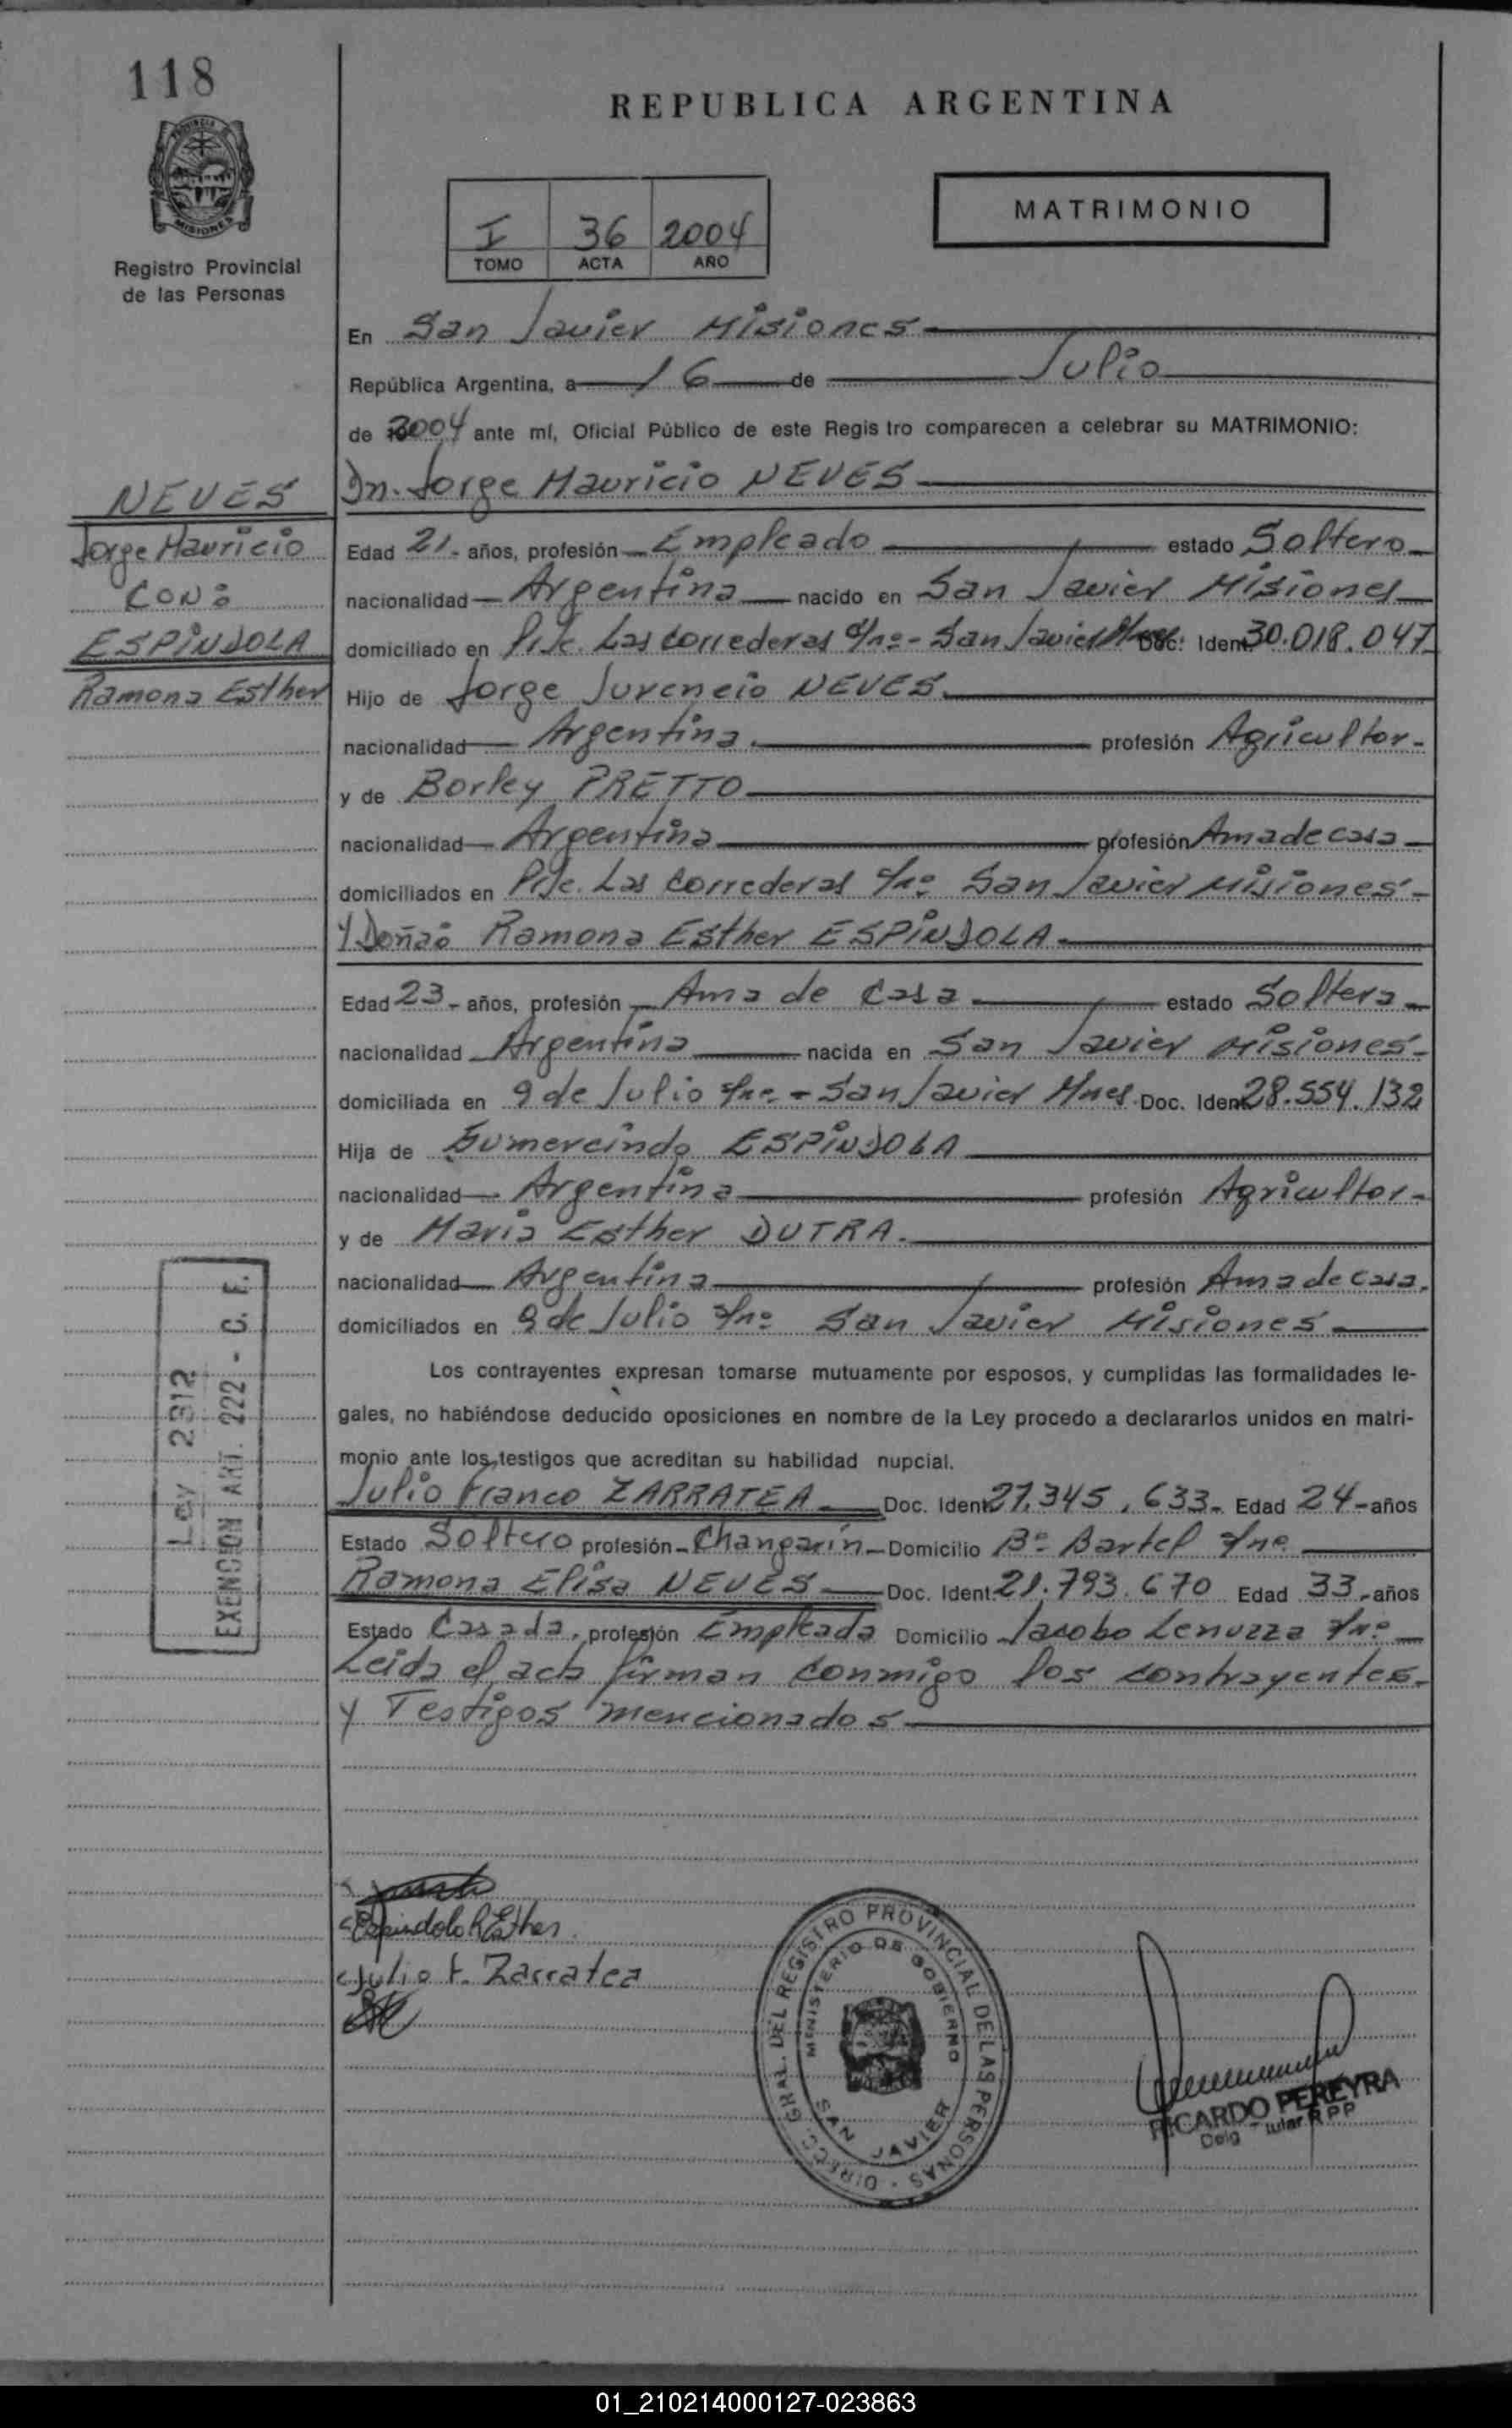 118
REPUBLICA ARGENTINA
PROVINCIA DE
MISIONES
Registro Provincial
de las Personas
I 36 2004
TOMO ACTA AÑO
MATRIMONIO
En San Javier Misiones
República Argentina, a 16 de Julio
de 2004 ante mí, Oficial Público de este Regis tro comparecen a celebrar su MATRIMONIO:
Dn. Jorge Mauricio NEVES
NEVES
Jorge Mauricio
CON:
ESPINDOLA
Ramona Esther
Edad 21- años, profesión Empleado estado Soltero
nacionalidad Argentina nacido en San Javier Misiones
domiciliado en Pje. Las Correderas s/nº - San Javier Mnes. Doc. Ident 30.018.047
Hijo de Jorge Juvencio NEVES
nacionalidad Argentina profesión Agricultor-
y de Borley PRETTO
nacionalidad Argentina profesión Ama de casa
domiciliados en Pje. Las Correderas s/nº San Javier Misiones-
y Doña: Ramona Esther ESPINDOLA
Edad 23- años, profesión Ama de Casa estado Soltera
nacionalidad Argentina nacida en San Javier Misiones-
domiciliada en 9 de Julio s/nº - San Javier Mnes. Doc. Ident 28.554.132
Hija de Gumercindo ESPINDOLA
nacionalidad Argentina profesión Agricultor-
y de Maria Esther DUTRA.
nacionalidad Argentina profesión Ama de casa.
domiciliados en 9 de Julio s/nº San Javier Misiones
Los contrayentes expresan tomarse mutuamente por esposos, y cumplidas las formalidades le-
gales, no habiéndose deducido oposiciones en nombre de la Ley procedo a declararlos unidos en matri-
monio ante los testigos que acreditan su habilidad nupcial.
Julio Franco ZARRATEA Doc. Ident 27.345.633- Edad 24- años
Estado Soltero profesión Changarín Domicilio Bº Bartel s/nº
Ramona Elisa NEVES Doc. Ident. 21.793.670 Edad 33- años
Estado Casada. profesión Empleada Domicilio Jacobo Lenuzza s/nº
Leida el acta firman conmigo los contrayentes-
y Testigos mencionados
Ley 2912
EXENCION ART. 222 - C. F.
Espindola R Esther
Julio F. Zarratea
DIRECC. GRAL. DEL REGISTRO PROVINCIAL DE LAS PERSONAS
MINISTERIO DE GOBIERNO
SAN JAVIER
RICARDO PEREYRA
R P P
01_210214000127-023863